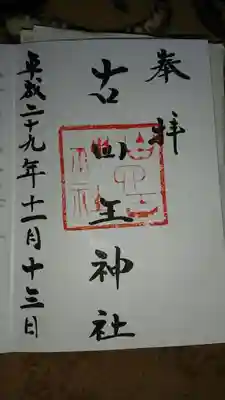 奉拝
古四王神社
平成二十九年十一月十三日